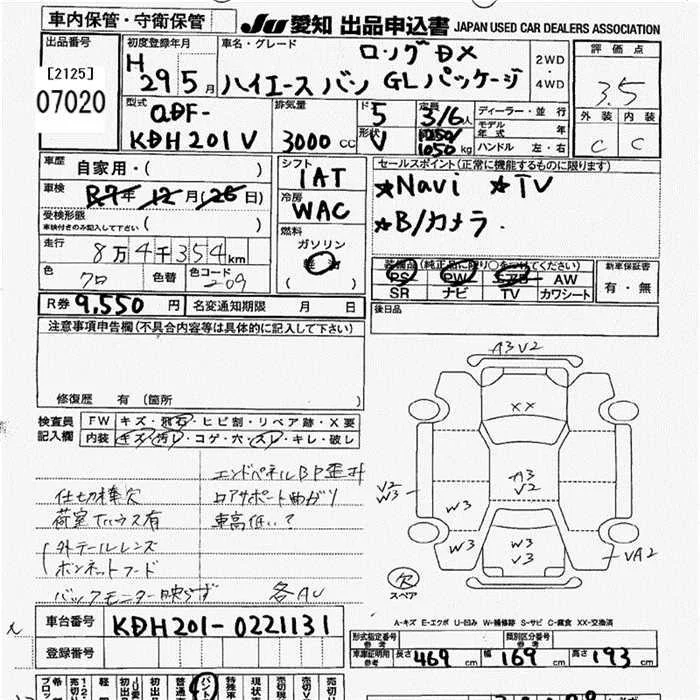 車内保管・守衛保管
JU 愛知 出品申込書 JAPAN USED CAR DEALERS ASSOCIATION
出品番号
[2125]
07020
初度登録年月
H 29 5月
車名・グレード
ロングDX
ハイエース バン GLパッケージ
2WD
・
4WD
評価点
3.5
外装 内装
C C
型式
QDF-
KDH201V
排気量
3000 CC
ド 5
形状 V
定員 3/6人
1050 kg
ディーラー・並行
モデル年式 年
ハンドル 左・右
車歴
自家用・( )
車検
R7年 12月(26日)
受検形態
車検付きのみ記入して下さい ( )
走行
8万4千354km
色 クロ 色替 色コード 209
シフト
1AT
冷房
WAC
燃料
ガソリン
( )
セールスポイント(正常に機能するものに限ります)
★Navi ★TV
★B/カメラ.
装備品(純正品に限り○をつけてください)
PS PW AW
SR ナビ TV カワシート
新車保証書
有・無
R券 9,550円 名変通知期限 月 日
後日品
注意事項申告欄(不具合内容等は具体的に記入して下さい)
修復歴 有(箇所 )
検査員記入欄
FW キズ・飛石・ヒビ割・リペア跡・X要
内装 キズ・汚レ・コゲ・穴・スレ・キレ・破レ
エンドパネルBP歪ミ
仕切棒欠 ロアサポート曲ガリ
荷室 有 車高低い?
外テールレンズ
ボンネットフード
バックモニター映らず 各AU
A3 V2
XX
A3
V2
V2
W3
W3
W3
W3
V3
VA2
欠
スペア
A-キズ E-エクボ U-凹み W-補修跡 S-サビ C-腐食 XX-交換済
車台番号 KDH201-0221131
登録番号
形式指定番号 参考
類別区分番号 参考
車庫証明用 参考 長さ 469 cm 幅 169 cm 高さ 193 cm